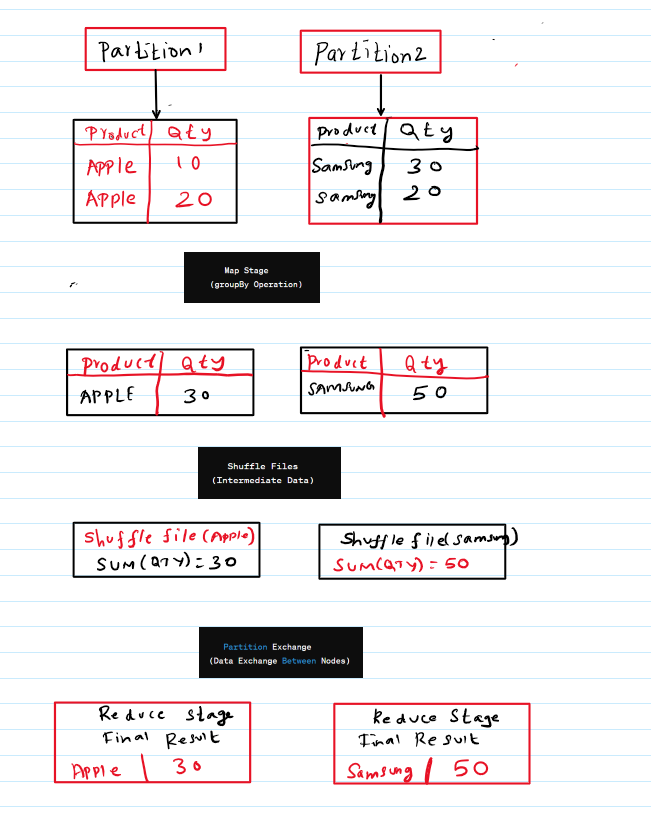 Partition1
Partition2
Product Qty
Apple 10
Apple 20
Product Qty
Samsung 30
Samsung 20
Map Stage
(groupBy Operation)
Product Qty
APPLE 30
Product Qty
SAMSUNG 50
Shuffle Files
(Intermediate Data)
Shuffle file (Apple)
SUM(QTY)=30
Shuffle file(Samsung)
SUM(QTY)=50
Partition Exchange
(Data Exchange Between Nodes)
Reduce Stage
Final Result
Apple 30
Reduce Stage
Final Result
Samsung 50